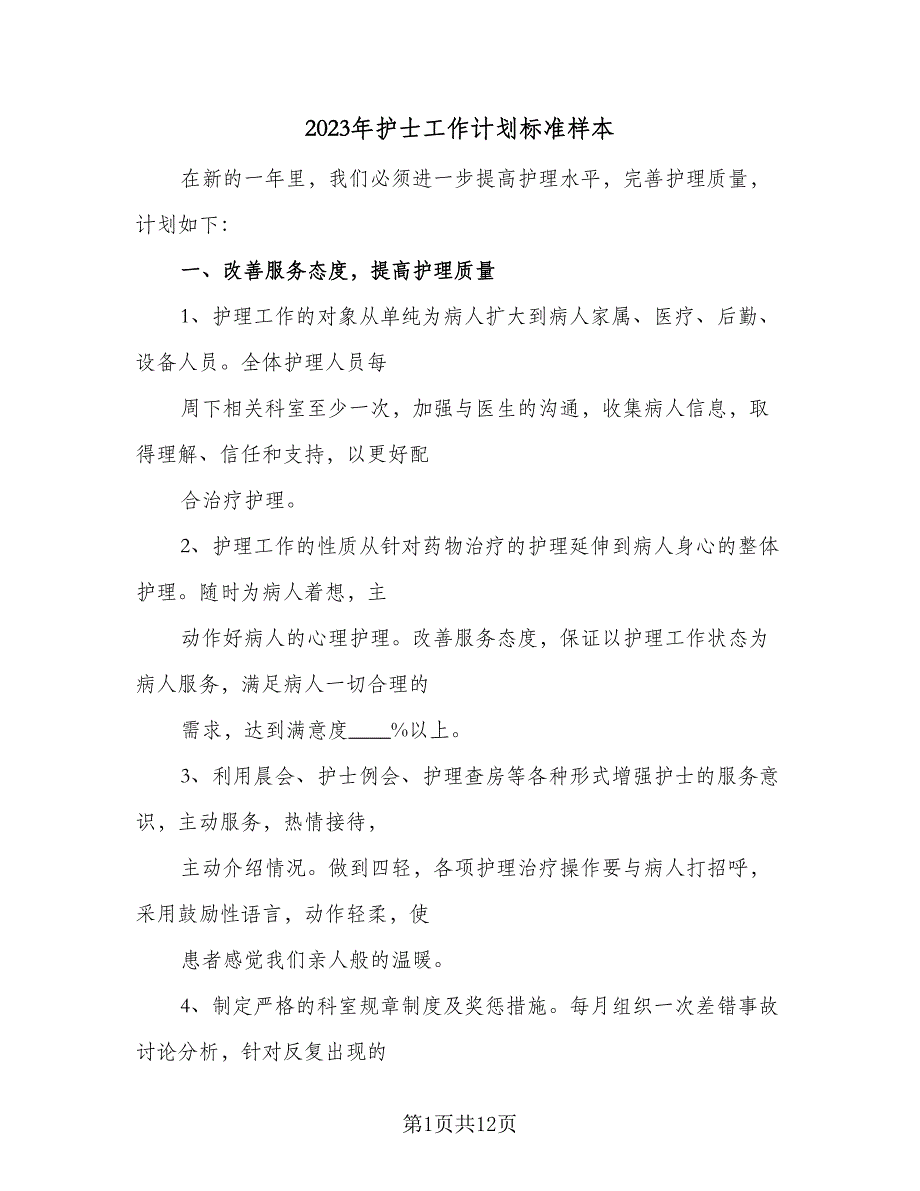 2023年护士工作计划标准样本
在新的一年里，我们必须进一步提高护理水平，完善护理质量，
计划如下：
一、改善服务态度，提高护理质量
1、护理工作的对象从单纯为病人扩大到病人家属、医疗、后勤、
设备人员。全体护理人员每
周下相关科室至少一次，加强与医生的沟通，收集病人信息，取
得理解、信任和支持，以更好配
合治疗护理。
2、护理工作的性质从针对药物治疗的护理延伸到病人身心的整体
护理。随时为病人着想，主
动作好病人的心理护理。改善服务态度，保证以护理工作状态为
病人服务，满足病人一切合理的
需求，达到满意度____%以上。
3、利用晨会、护士例会、护理查房等各种形式增强护士的服务意
识，主动服务，热情接待，
主动介绍情况。做到四轻，各项护理治疗操作要与病人打招呼，
采用鼓励性语言，动作轻柔，使
患者感觉我们亲人般的温暖。
4、制定严格的科室规章制度及奖惩措施。每月组织一次差错事故
讨论分析，针对反复出现的
第1页共12页